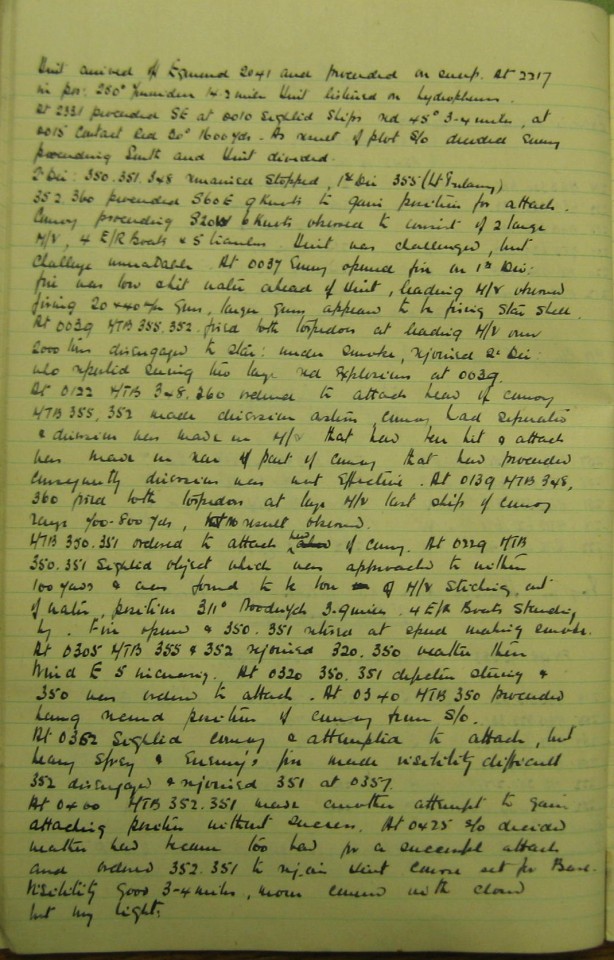 Unit arrived off Egmond 2041 and proceeded on sweep. At 2217
in pos: 280° Ijmuiden 14.3 miles Unit listened on hydrophones.
At 2331 proceeded SE at 0010 sighted Ships red 45° 3-4 miles, at
0015 Contact Red 20° 1600 yds. As result of plot S/O decided Enemy
proceeding South and Unit divided.
2nd Div: 350.351.348 remained stopped, 1st Div 355
352.360 proceeded S60E 9 Knots to gain position for attack.
Convoy proceeding S20W 6 Knots observed to consist of 2 large
M/V, 4 E/R Boats & 5 trawlers. Unit was challenged, but
challenge unreadable. At 0037 Enemy opened fire on 1st Div:
fire was low & hit water ahead of Unit, leading M/V observed
firing 20 & 40 m/m guns, larger guns appear to be firing Star Shell.
At 0039 MTB 355.352 fired both torpedoes at leading M/V over
2000 tons disengaged to stbd: under smoke, rejoined 2nd Div:
who reported seeing two large red explosions at 0039.
At 0122 MTB 348.360 ordered to attack head of convoy
MTB 355, 352 made diversion astern, convoy had separated
& diversion was made on M/V that had been hit & attack
was made on rear of part of convoy that had proceeded
consequently diversion was not effective. At 0139 MTB 348,
360 fired both torpedoes at large M/V last ship of convoy
range 700-800 yds, no result observed.
MTB 350.351 ordered to attack head of convoy. At 0229 MTB
350.351 sighted object which was approached to within
100 yards & was found to be bow of M/V sticking out
of water, position 311° Noordwyk 3.9 miles. 4 E/R Boats standing
by. Fire opened & 350.351 retired at speed making smoke.
At 0305 MTB 355 & 352 rejoined 320.350 weather then
Wind E 5 increasing. At 0320 350.351 defective steering &
350 was ordered to attack. At 0340 MTB 350 proceeded
having received position of convoy from S/O.
At 0352 sighted convoy & attempted to attack, but
heavy spray & Enemy's fire made visibility difficult
352 disengaged & rejoined 351 at 0357.
At 0400 MTB 352.351 made another attempt to gain
attacking position without success. At 0425 S/O decided
weather had become too bad for a successful attack
and ordered 352.351 to rejoin Unit course set for Base.
Visibility Good 3-4 miles, moon covered with cloud
but very light.